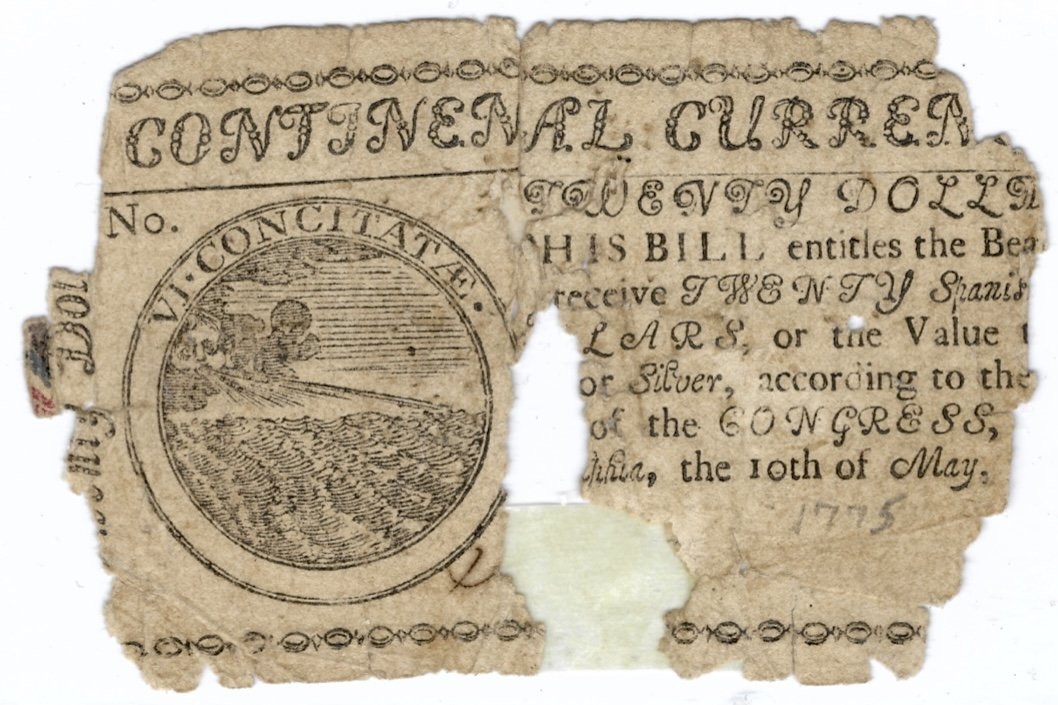 CONTINENTAL CURREN
TWENTY DOLLA
No.
VI·CONCITATÆ.
HIS BILL entitles the Bea
receive TWENTY Spanis
LARS, or the Value
or Silver, according to the
of the CONGRESS,
phia, the 10th of May,
1775